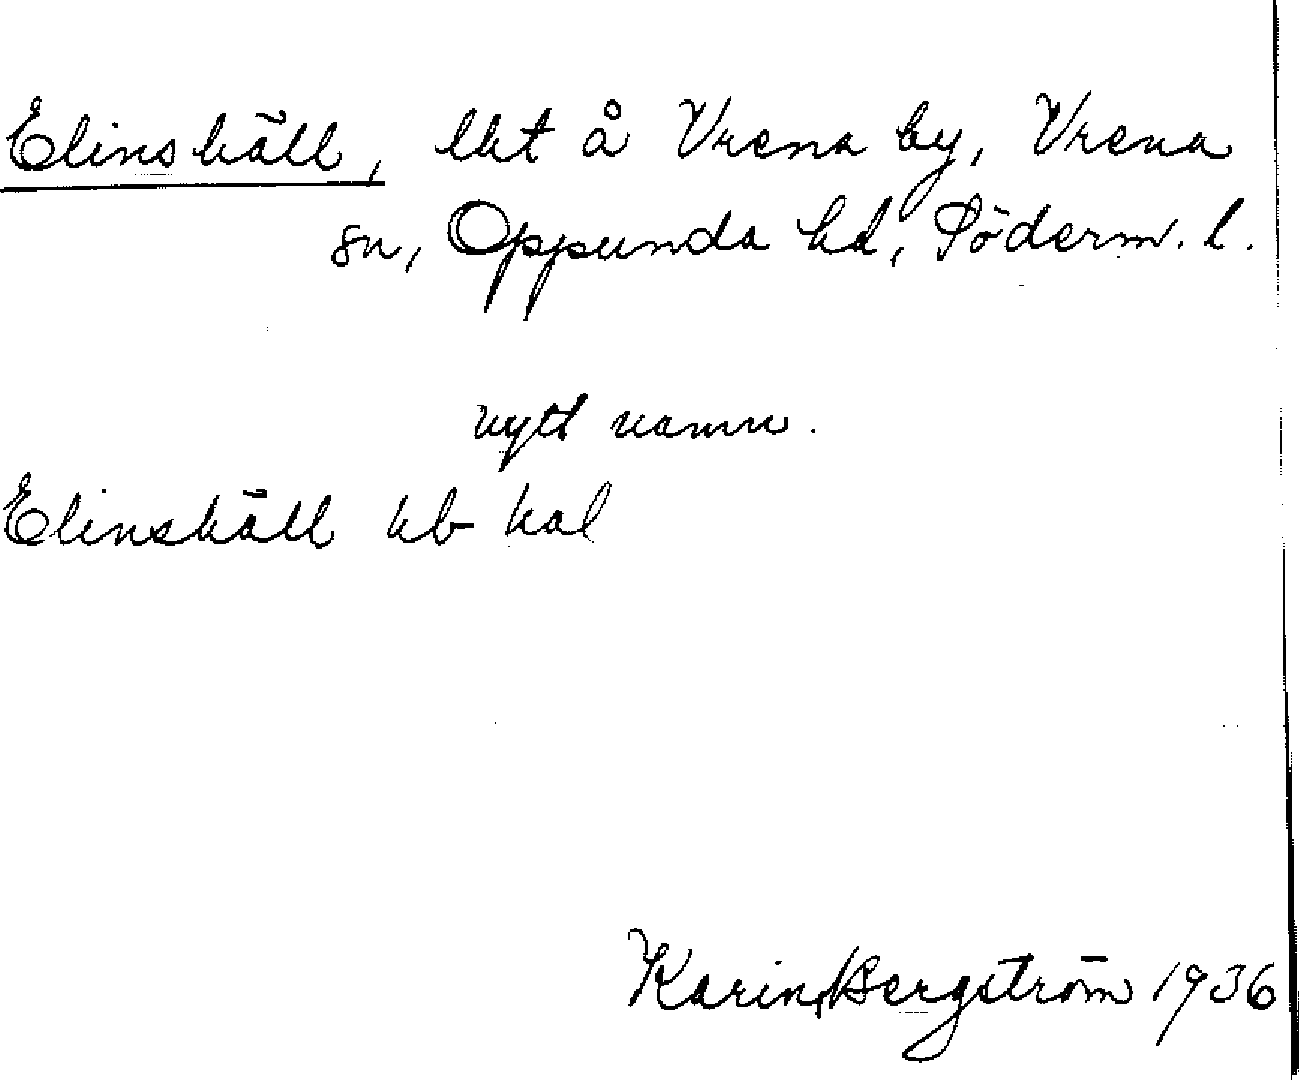 Elinskäll, lht å Vrena by, Vrena
sn, Oppunda hd, Söderm. l.
nytt namn.
Elinskäll kb kal
Karin Bergström 1936